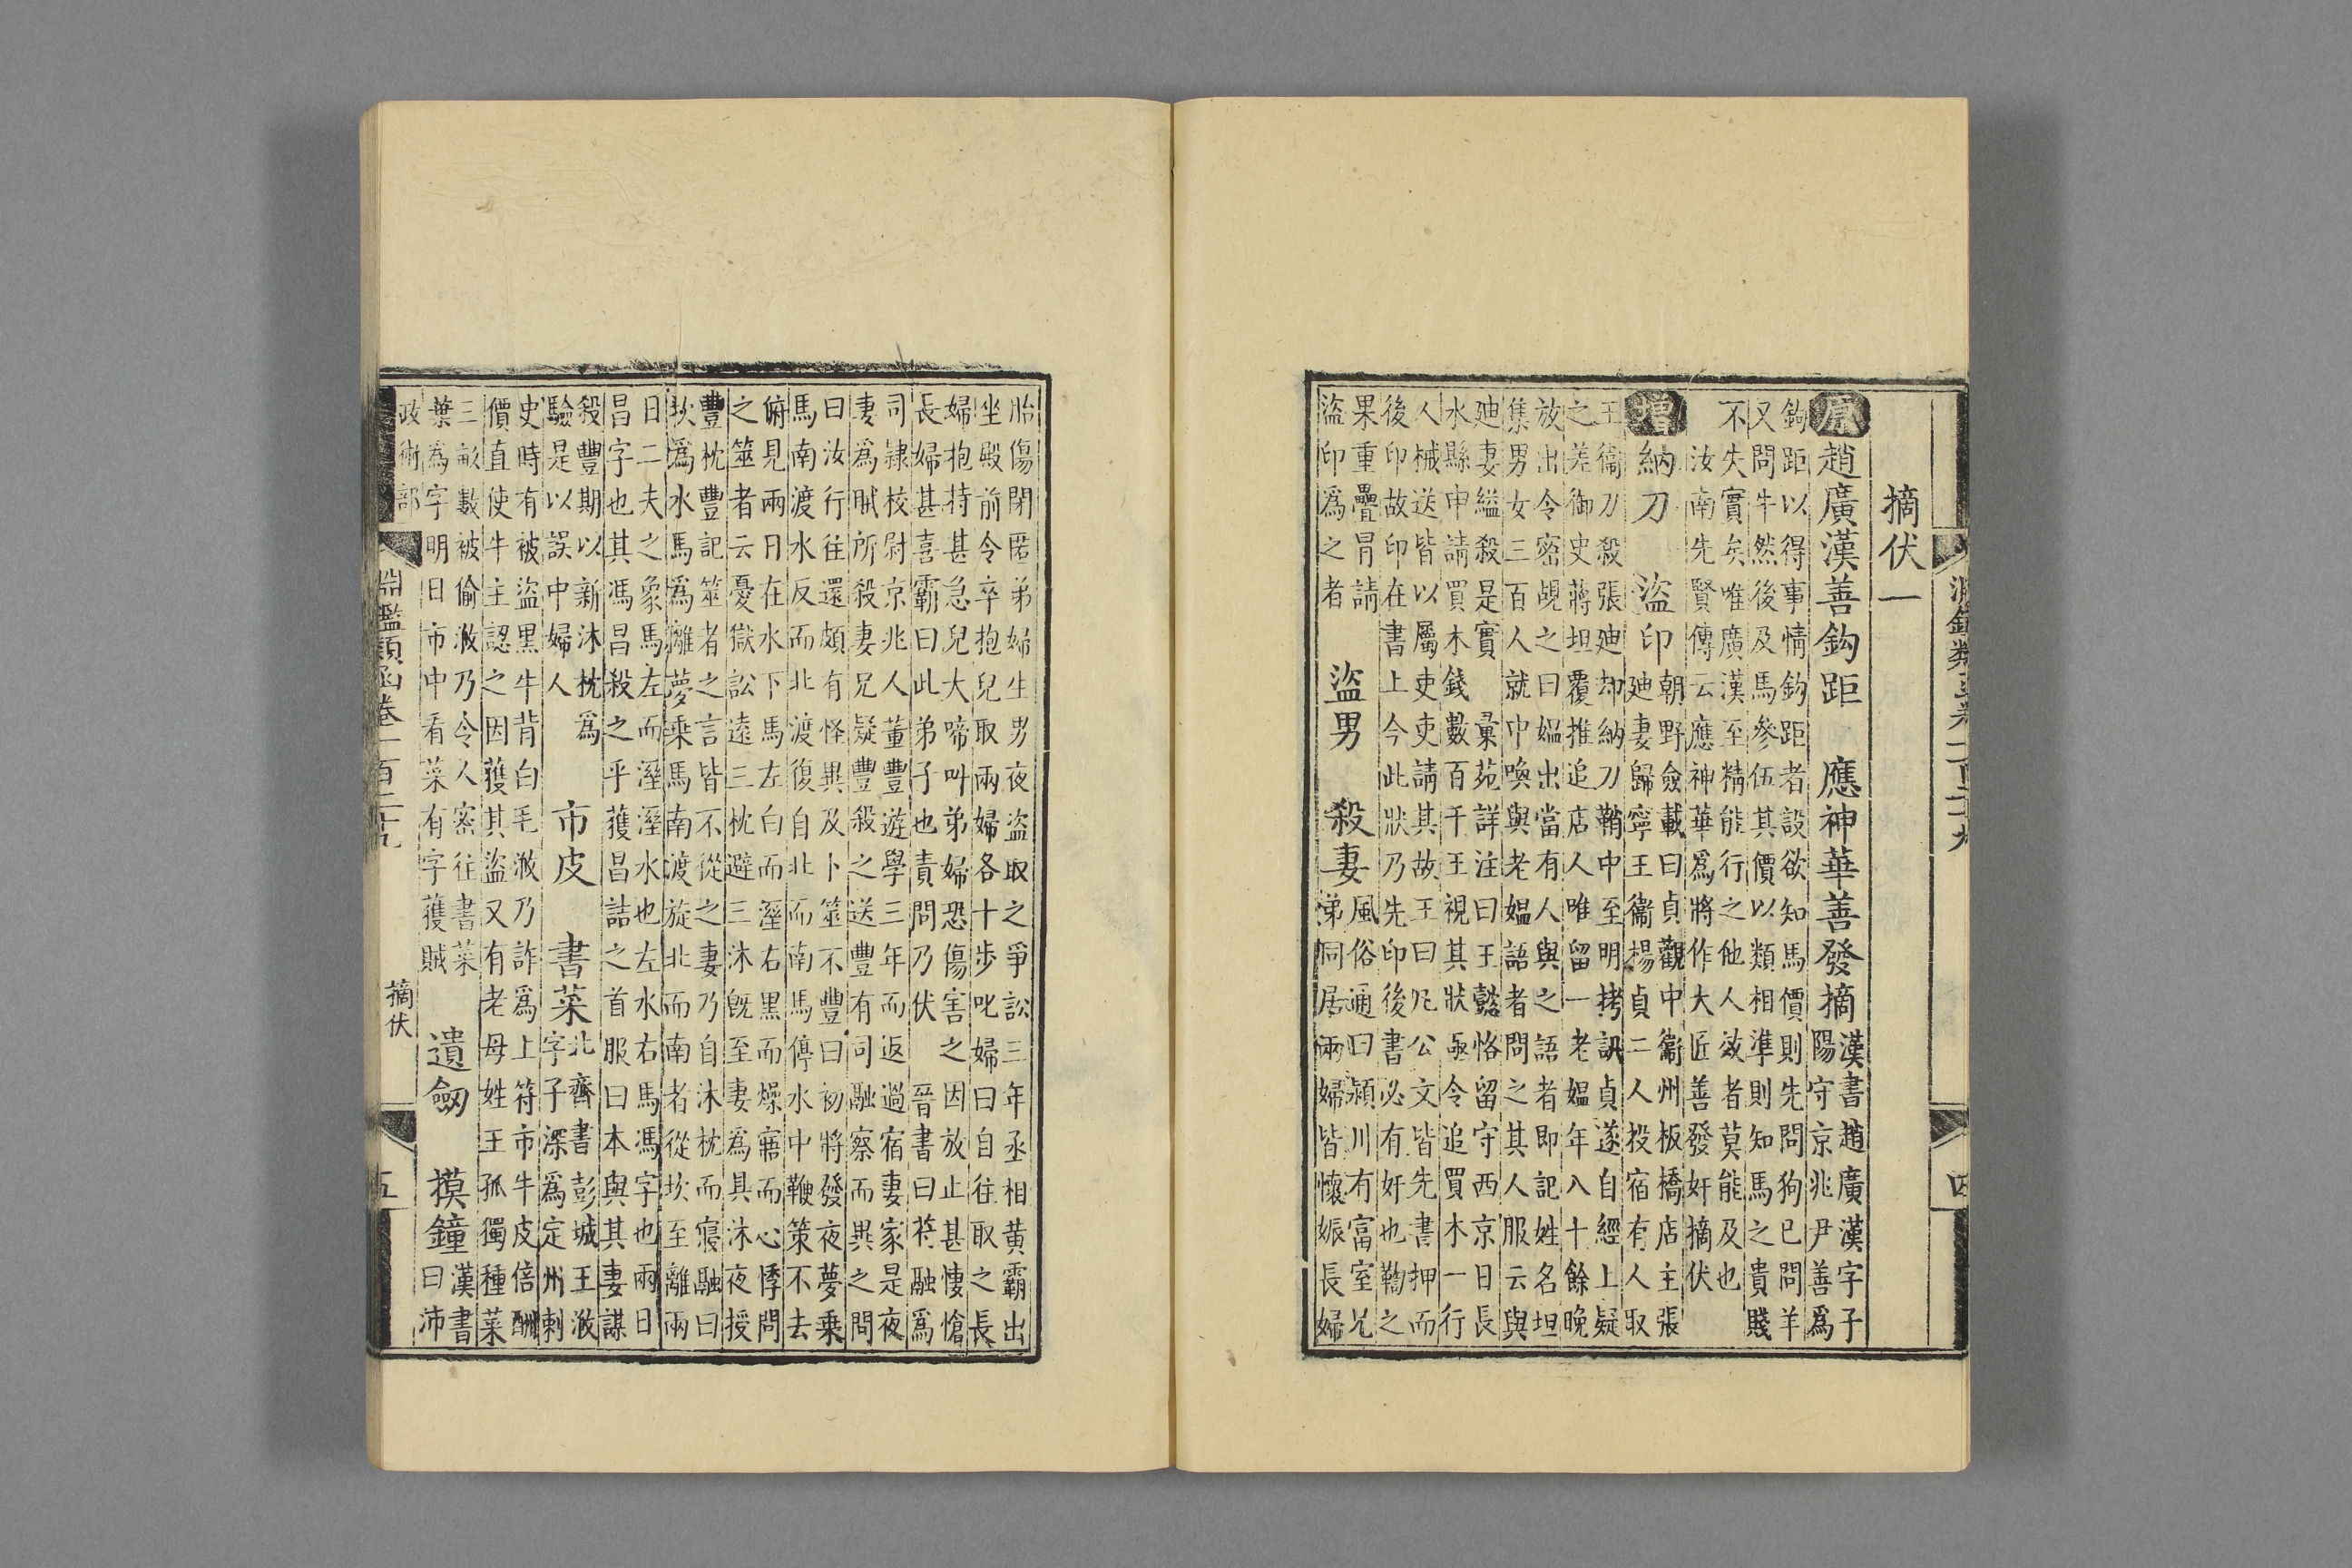 淵鑑類函卷一百二十九　四
摘伏一
原　趙廣漢善鈎距　應神華善發摘
漢書趙廣漢字子
陽守京兆尹善爲
鈎距以得事情鈎距者設欲知馬價則先問狗已問羊
又問牛然後及馬參伍其價以類相準則知馬之貴賤
不失實矣唯廣漢至精能行之他人效者莫能及也
汝南先賢傳云應神華爲將作大匠善發奸摘伏
增　納刀　盜印
朝野僉載曰貞觀中衞州板橋店主張
迪妻歸寧王衞楊貞二人投宿有人取
王衞刀殺張迪却納刀鞘中至明拷訊貞遂自經上疑
之差御史蔣坦覆推追店人唯留一老媼年八十餘晚
放出令密覘之曰媼出當有人與之語者即記姓名坦
集男女三百人就中喚與老媼語者問之其人服云與
迪妻縊殺是實　彙苑詳注曰王懿恪留守西京日長
水縣申請買木錢數百千王視其狀亟令追買木一行
人械送皆以屬吏吏請其故王曰凡公文皆先書押而
後印故印在書上今此狀乃先印後書必有奸也鞫之
果重疊冒請
盜印爲之者
盜男　殺妻
風俗通曰潁川有富室兄
弟同居兩婦皆懷娠長婦
胎傷閉匿弟婦生男夜盜取之爭訟三年丞相黃霸出
坐殿前令卒抱兒取兩婦各十步叱婦曰自往取之長
婦抱持甚急兒大啼叫弟婦恐傷害之因放止甚悽愴
長婦甚喜霸曰此弟子也責問乃伏　晉書曰苻融爲
司隷校尉京兆人董豐遊學三年而返過宿妻家是夜
妻爲賊所殺妻兄疑豐殺之送豐有司融察而異之問
曰汝行往還頗有怪異及卜筮不豐曰初將發夜夢乘
馬南渡水反而北渡復自北而南馬停水中鞭策不去
俯見兩日在水下馬左白而溼右黑而燥寤而心悸問
之筮者云憂獄訟遠三枕避三沐旣至妻爲具沐夜授
豐枕豐記筮者之言皆不從之妻乃自沐枕而寢融曰
坎爲水馬爲離夢乘馬南渡旋北而南者從坎至離兩
日二夫之象馬左而溼溼水也左水右馬馮字也兩日
昌字也其馮昌殺之乎獲昌詰之首服曰本與其妻謀
殺豐期以新沐枕爲
驗是以誤中婦人
市皮　書菜
北齊書彭城王浟
字子深爲定州刺
史時有被盜黑牛背白毛浟乃詐爲上符市牛皮倍酬
價直使牛主認之因獲其盜又有老母姓王孤獨種菜
三畝數被偷浟乃令人密往書菜
葉爲字明日市中看菜有字獲賊
遺劒　摸鐘
漢書
曰沛
政術部　摘伏
淵鑑類函卷一百二十九　五